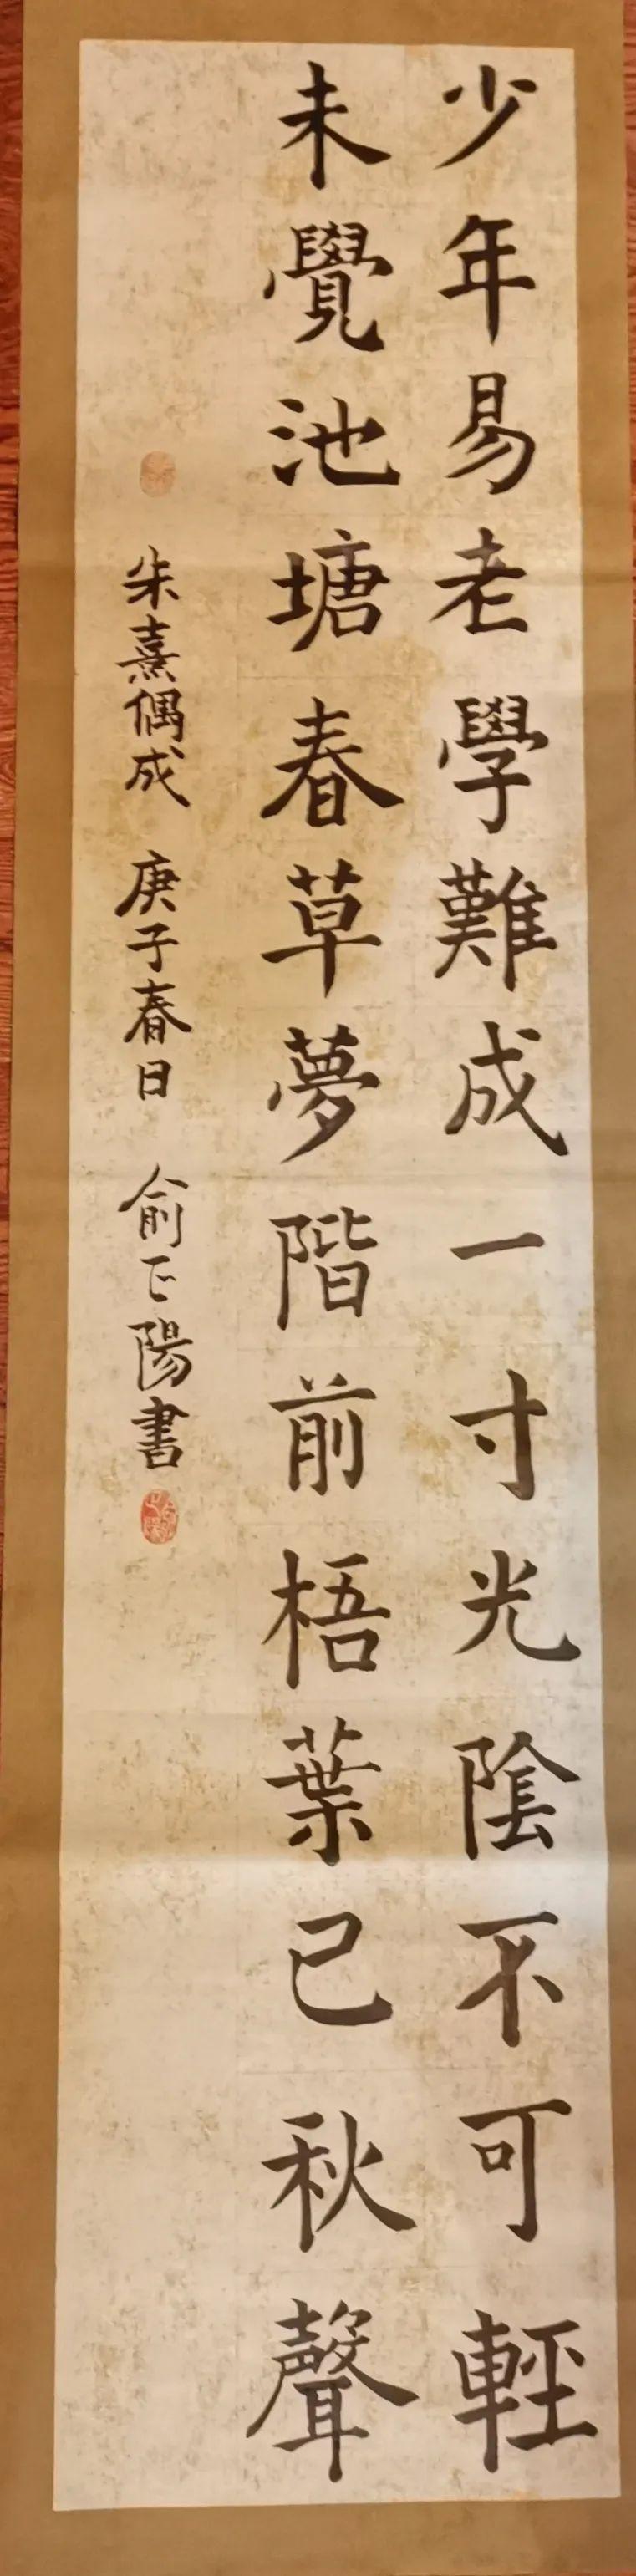 少年易老學難成一寸光陰不可輕
未覺池塘春草夢階前梧葉已秋聲
朱熹偶成 庚子春日 俞正陽書